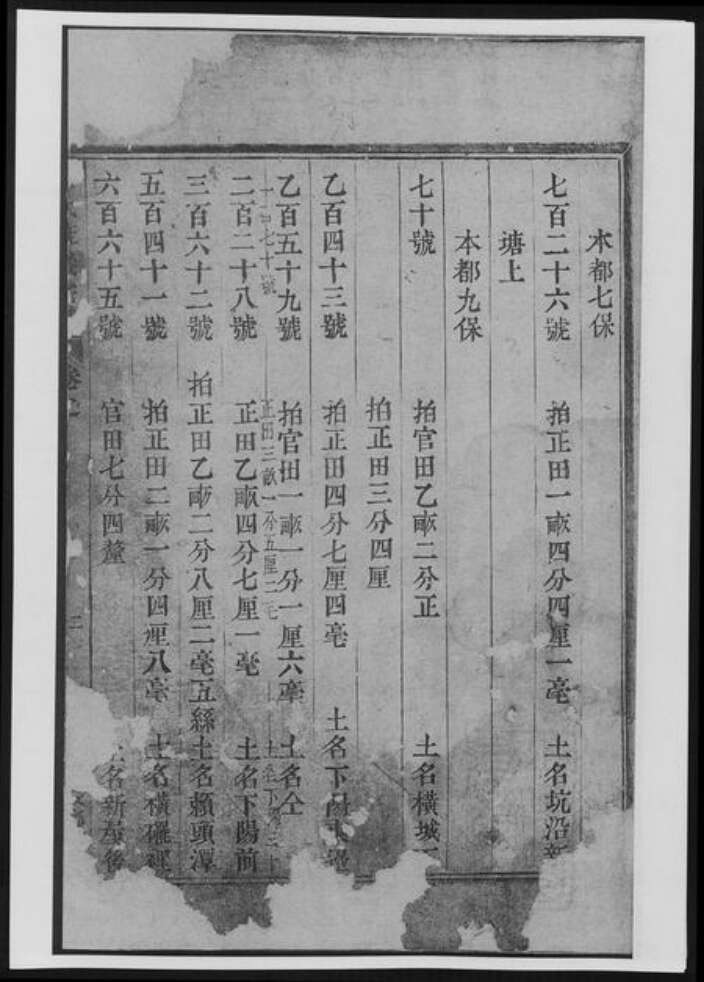 本都七保
七百二十六號 拍正田一畝四分四厘一毫 土名坑沿新
塘上
本都九保
七十號 拍官田乙畝二分正 土名橫城
拍正田三分四厘
乙百四十三號 拍正田四分七厘四毫 土名下
乙百五十九號 拍官田一畝一分一厘六毫 土名仝
七十號 正田三畝一分五厘二毛 土名下
二百二十八號 正田乙畝四分七厘一毫 土名下陽前
三百六十二號 拍正田乙畝二分八厘二毫五絲 土名賴頭潭
五百四十一號 拍正田二畝一分四厘八毫 土名橫
六百六十五號 官田七分四釐 土名新屋後
卷之 二